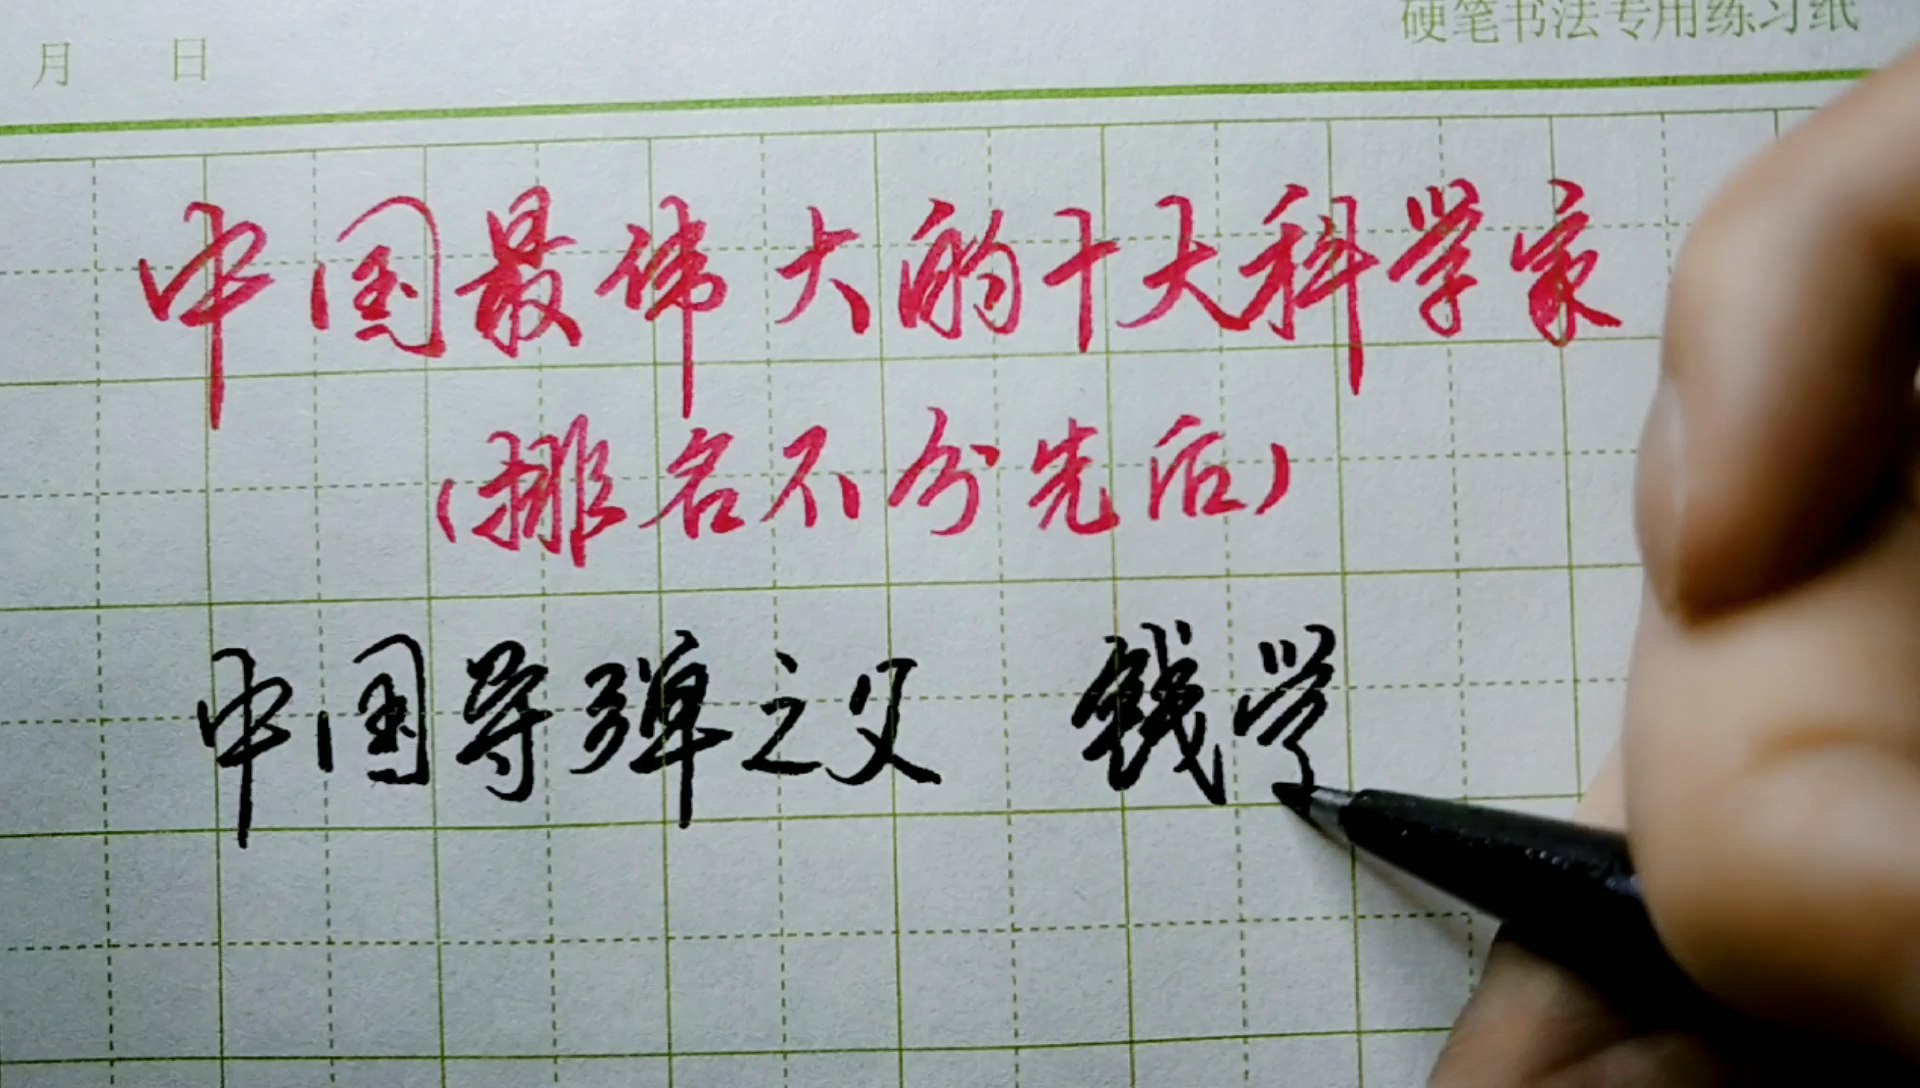 月 日 硬笔书法专用练习纸
中国最伟大的十大科学家
(排名不分先后)
中国导弹之父 钱学